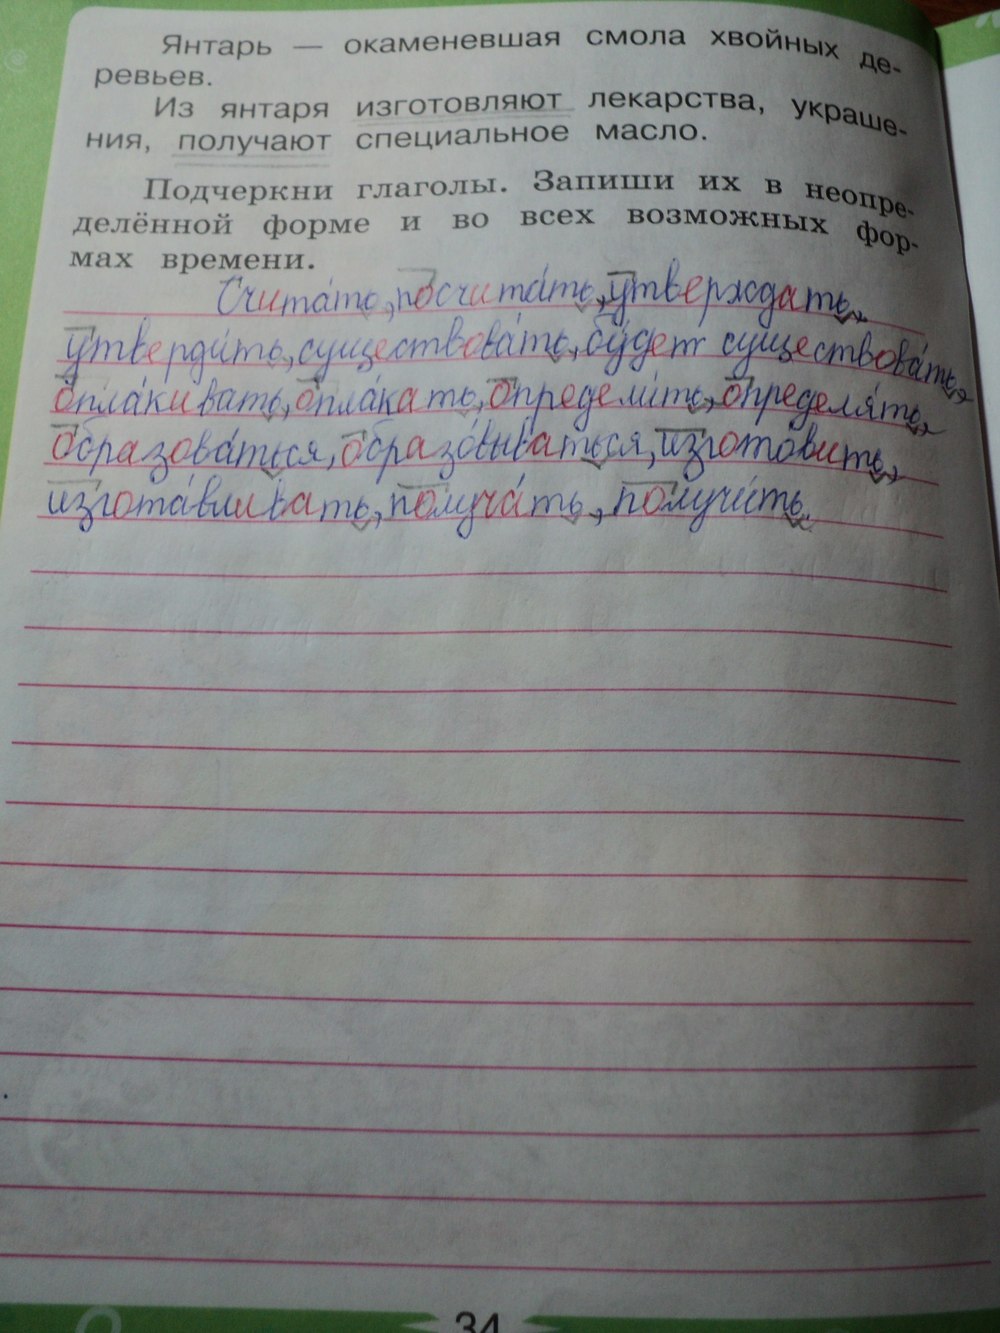 Янтарь — окаменевшая смола хвойных де-
ревьев.
Из янтаря изготовляют лекарства, украше-
ния, получают специальное масло.
Подчеркни глаголы. Запиши их в неопре-
делённой форме и во всех возможных фор-
мах времени.
Счита́ть, посчита́ть, утверждать,
утверди́ть, существова́ть, бу́дет существова́ть,
опла́кивать, опла́кать, определи́ть, определя́ть,
образова́ться, образо́вываться, изгото́вить,
изгота́вливать, получа́ть, получи́ть.
34